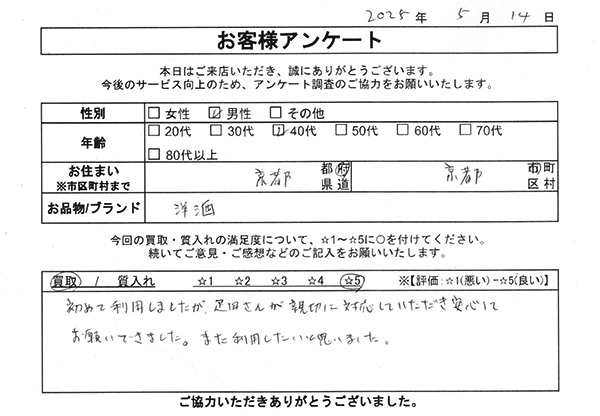 2025年 5月 14日
お客様アンケート
本日はご来店いただき、誠にありがとうございます。
今後のサービス向上のため、アンケート調査のご協力をお願いいたします。
性別 □女性 ☑男性 □その他
年齢 □20代 □30代 ☑40代 □50代 □60代 □70代
□80代以上
お住まい 京都 都府県道 京都 市町区村
※市区町村まで
お品物/ブランド 洋酒
今回の買取・質入れの満足度について、☆1～☆5に○を付けてください。
続いてご意見・ご感想などのご記入をお願いいたします。
買取 / 質入れ ☆1 ☆2 ☆3 ☆4 ☆5 ※【評価:☆1(悪い)－☆5(良い)】
初めて利用しましたが、疋田さんが親切に対応していただき安心して
お願いできました。また利用したいと思いました。
ご協力いただきありがとうございました。